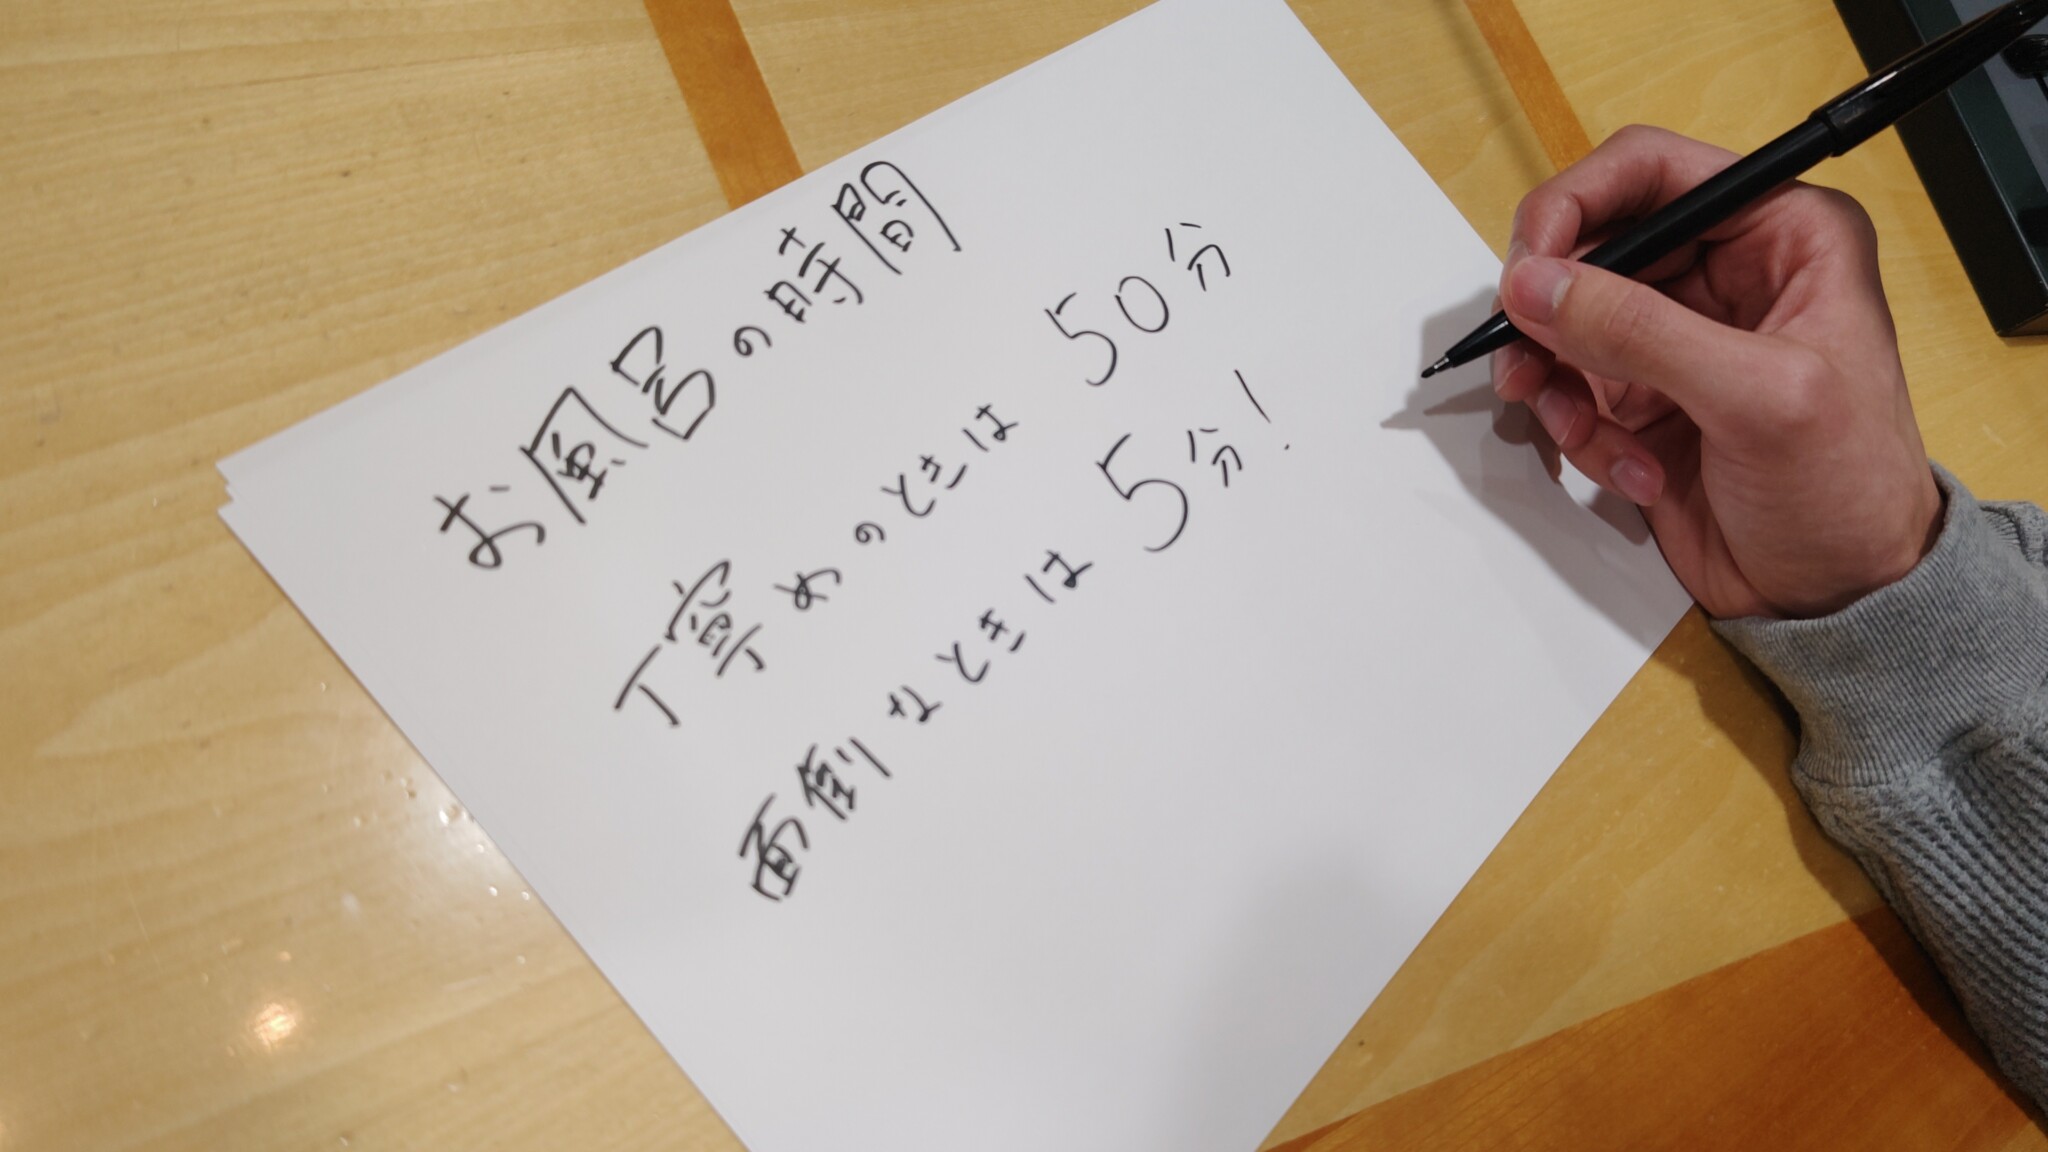 お風呂の時間
丁寧めのときは 50分
面倒なときは 5分!